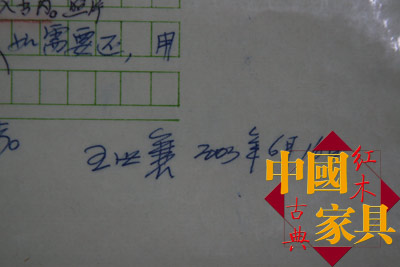 照片
需要还，用
王世襄 2003年6月
中國
家具
红木
古典